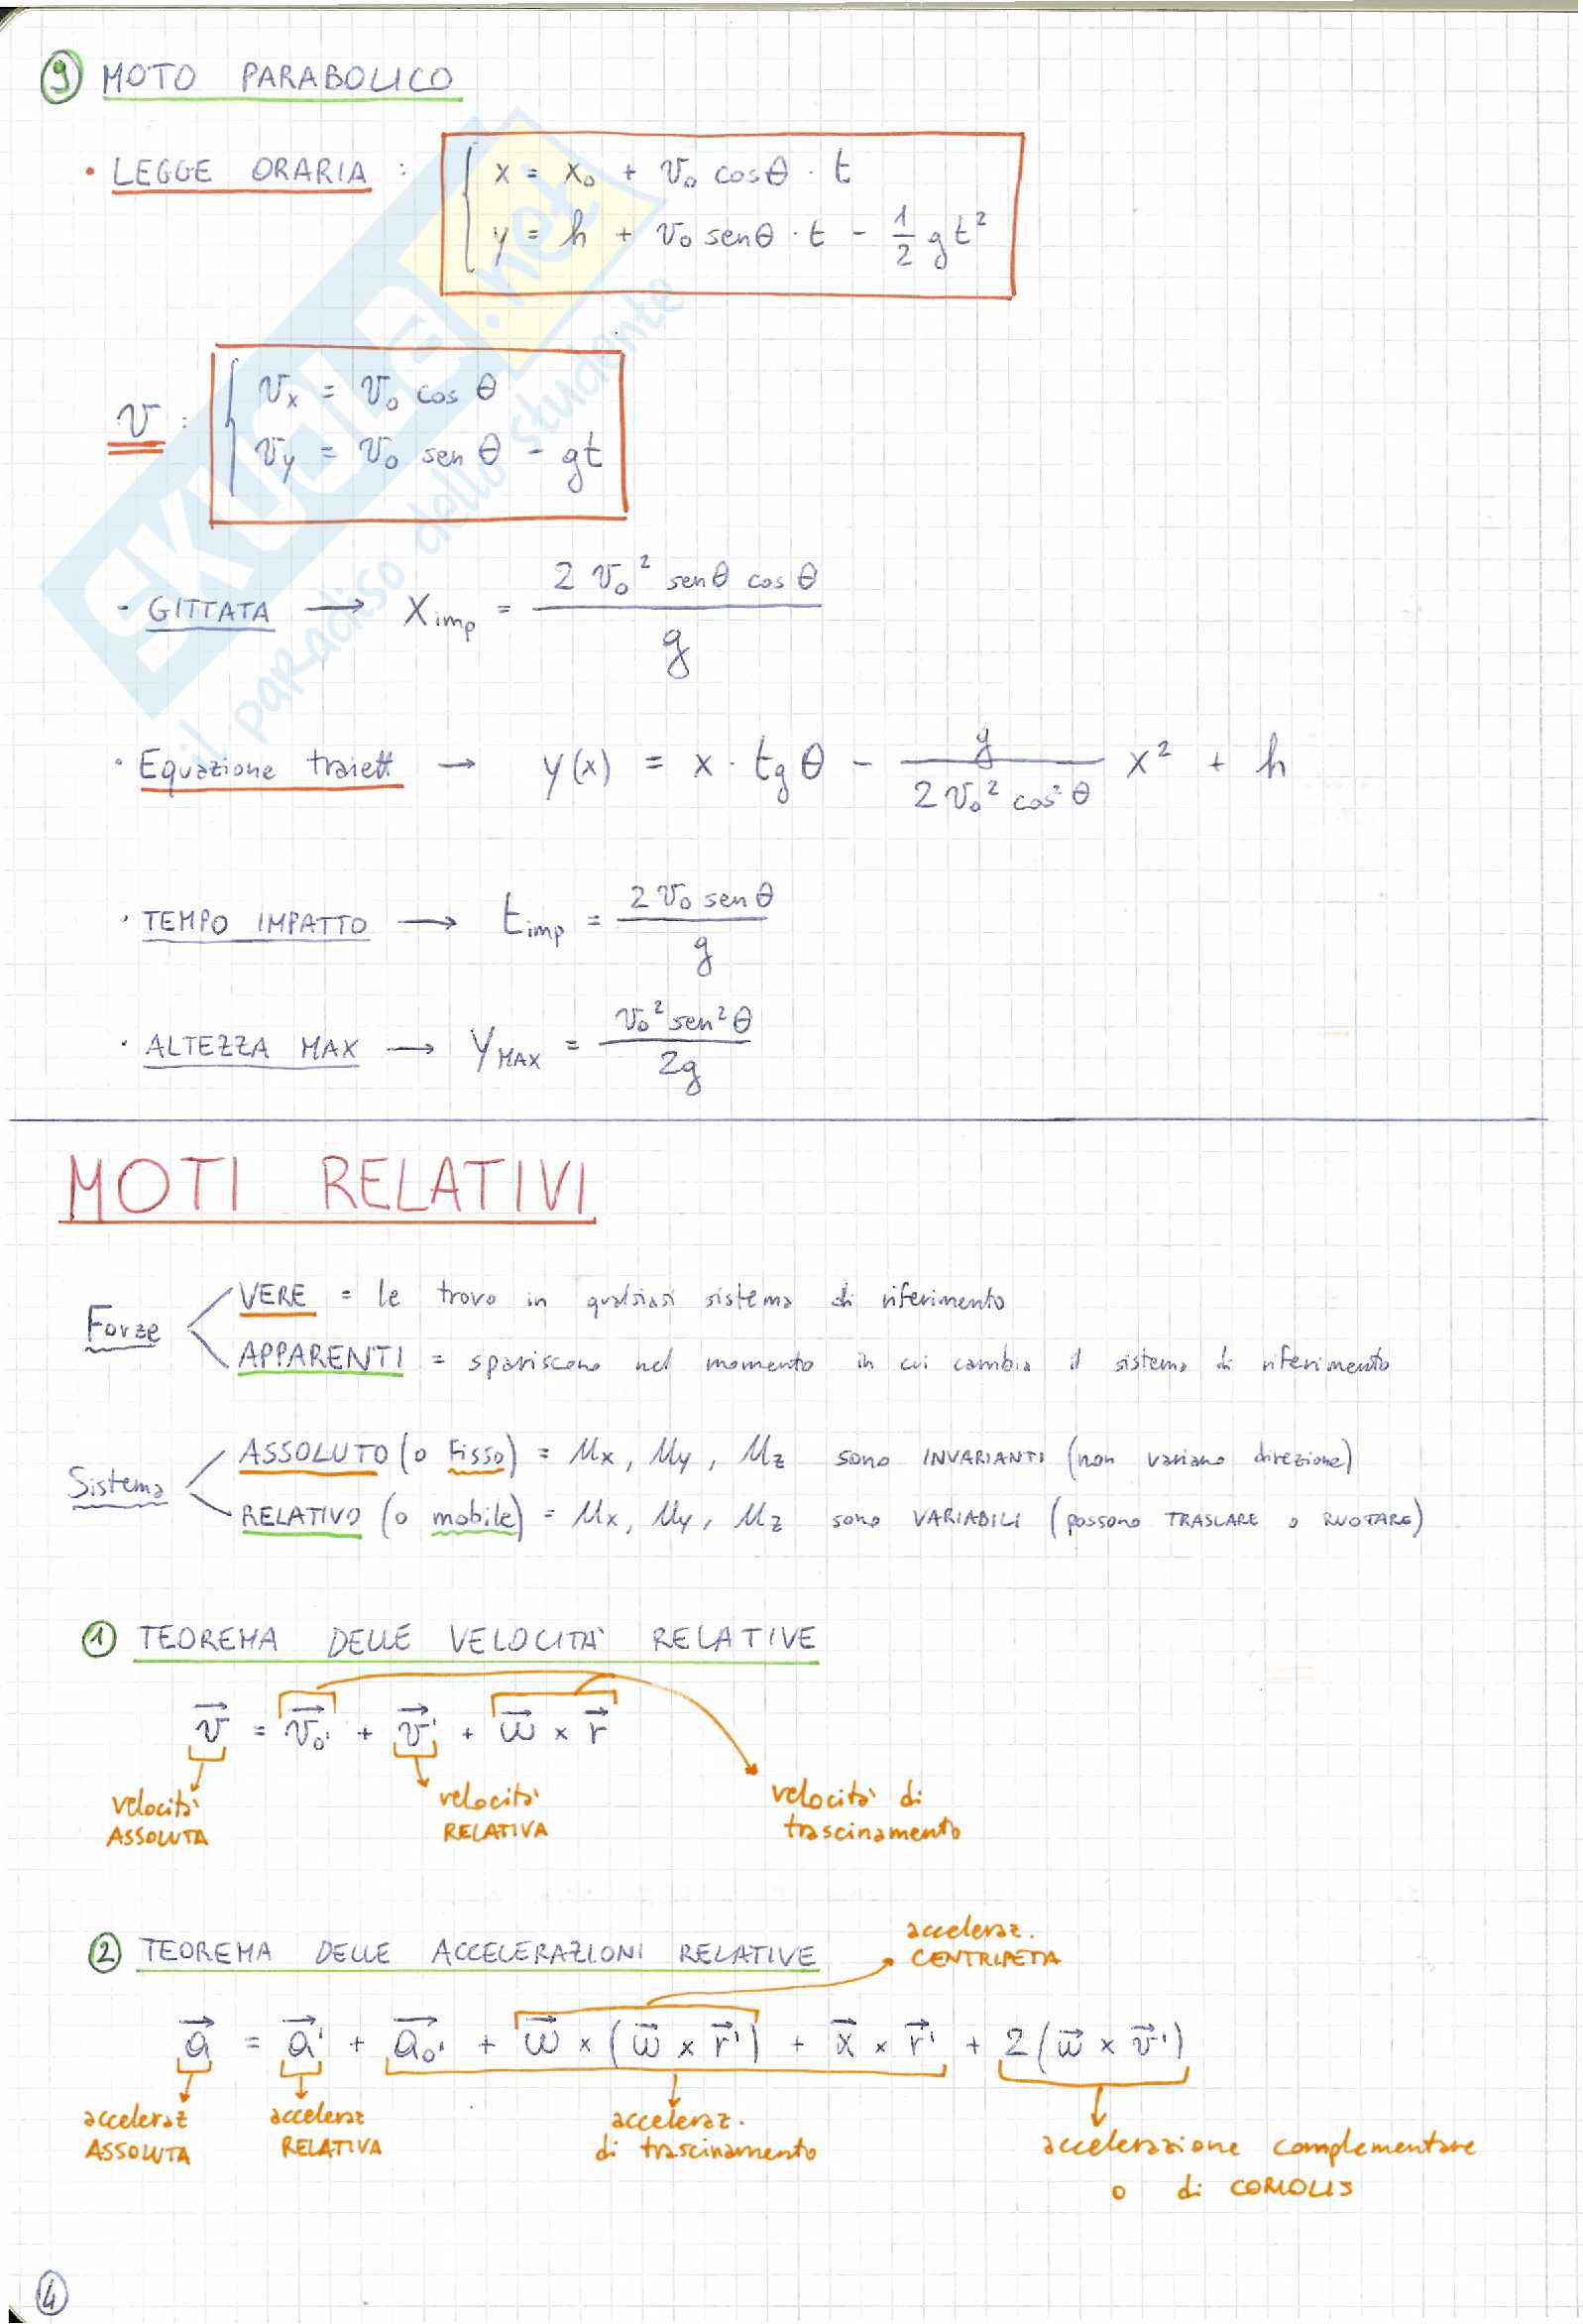 9 MOTO PARABOLICO
• LEGGE ORARIA : { x = x₀ + v₀ cosθ · t
y = h + v₀ senθ · t - 1/2 gt²
v : { vₓ = v₀ cos θ
v_y = v₀ sen θ - gt
- GITTATA → X_imp = 2 v₀² senθ cosθ / g
· Equazione traiett → y(x) = x · tg θ - g / 2 v₀² cos² θ x² + h
· TEMPO IMPATTO → t_imp = 2 v₀ senθ / g
· ALTEZZA MAX → Y_MAX = v₀² sen² θ / 2g
MOTI RELATIVI
Forze
VERE = le trovo in qualsiasi sistema di riferimento
APPARENTI = spariscono nel momento in cui cambia il sistema di riferimento
Sistema
ASSOLUTO (o Fisso) = μx, μy, μz sono INVARIANTI (non variano direzione)
RELATIVO (o mobile) = μx, μy, μz sono VARIABILI (possono TRASLARE o RUOTARE)
1 TEOREMA DELLE VELOCITA' RELATIVE
v⃗ = v⃗₀' + v⃗' + ω⃗ × r⃗
velocità ASSOLUTA
velocità RELATIVA
velocità di trascinamento
2 TEOREMA DELLE ACCELERAZIONI RELATIVE
acceleraz. CENTRIPETA
a⃗ = a⃗' + a⃗₀' + ω⃗ × (ω⃗ × r⃗') + α⃗ × r⃗' + 2(ω⃗ × v⃗')
acceleraz ASSOLUTA
acceleraz RELATIVA
acceleraz. di trascinamento
accelerazione complementare o di CORIOLIS
4
SKUOLA.net
il paradiso dello studente